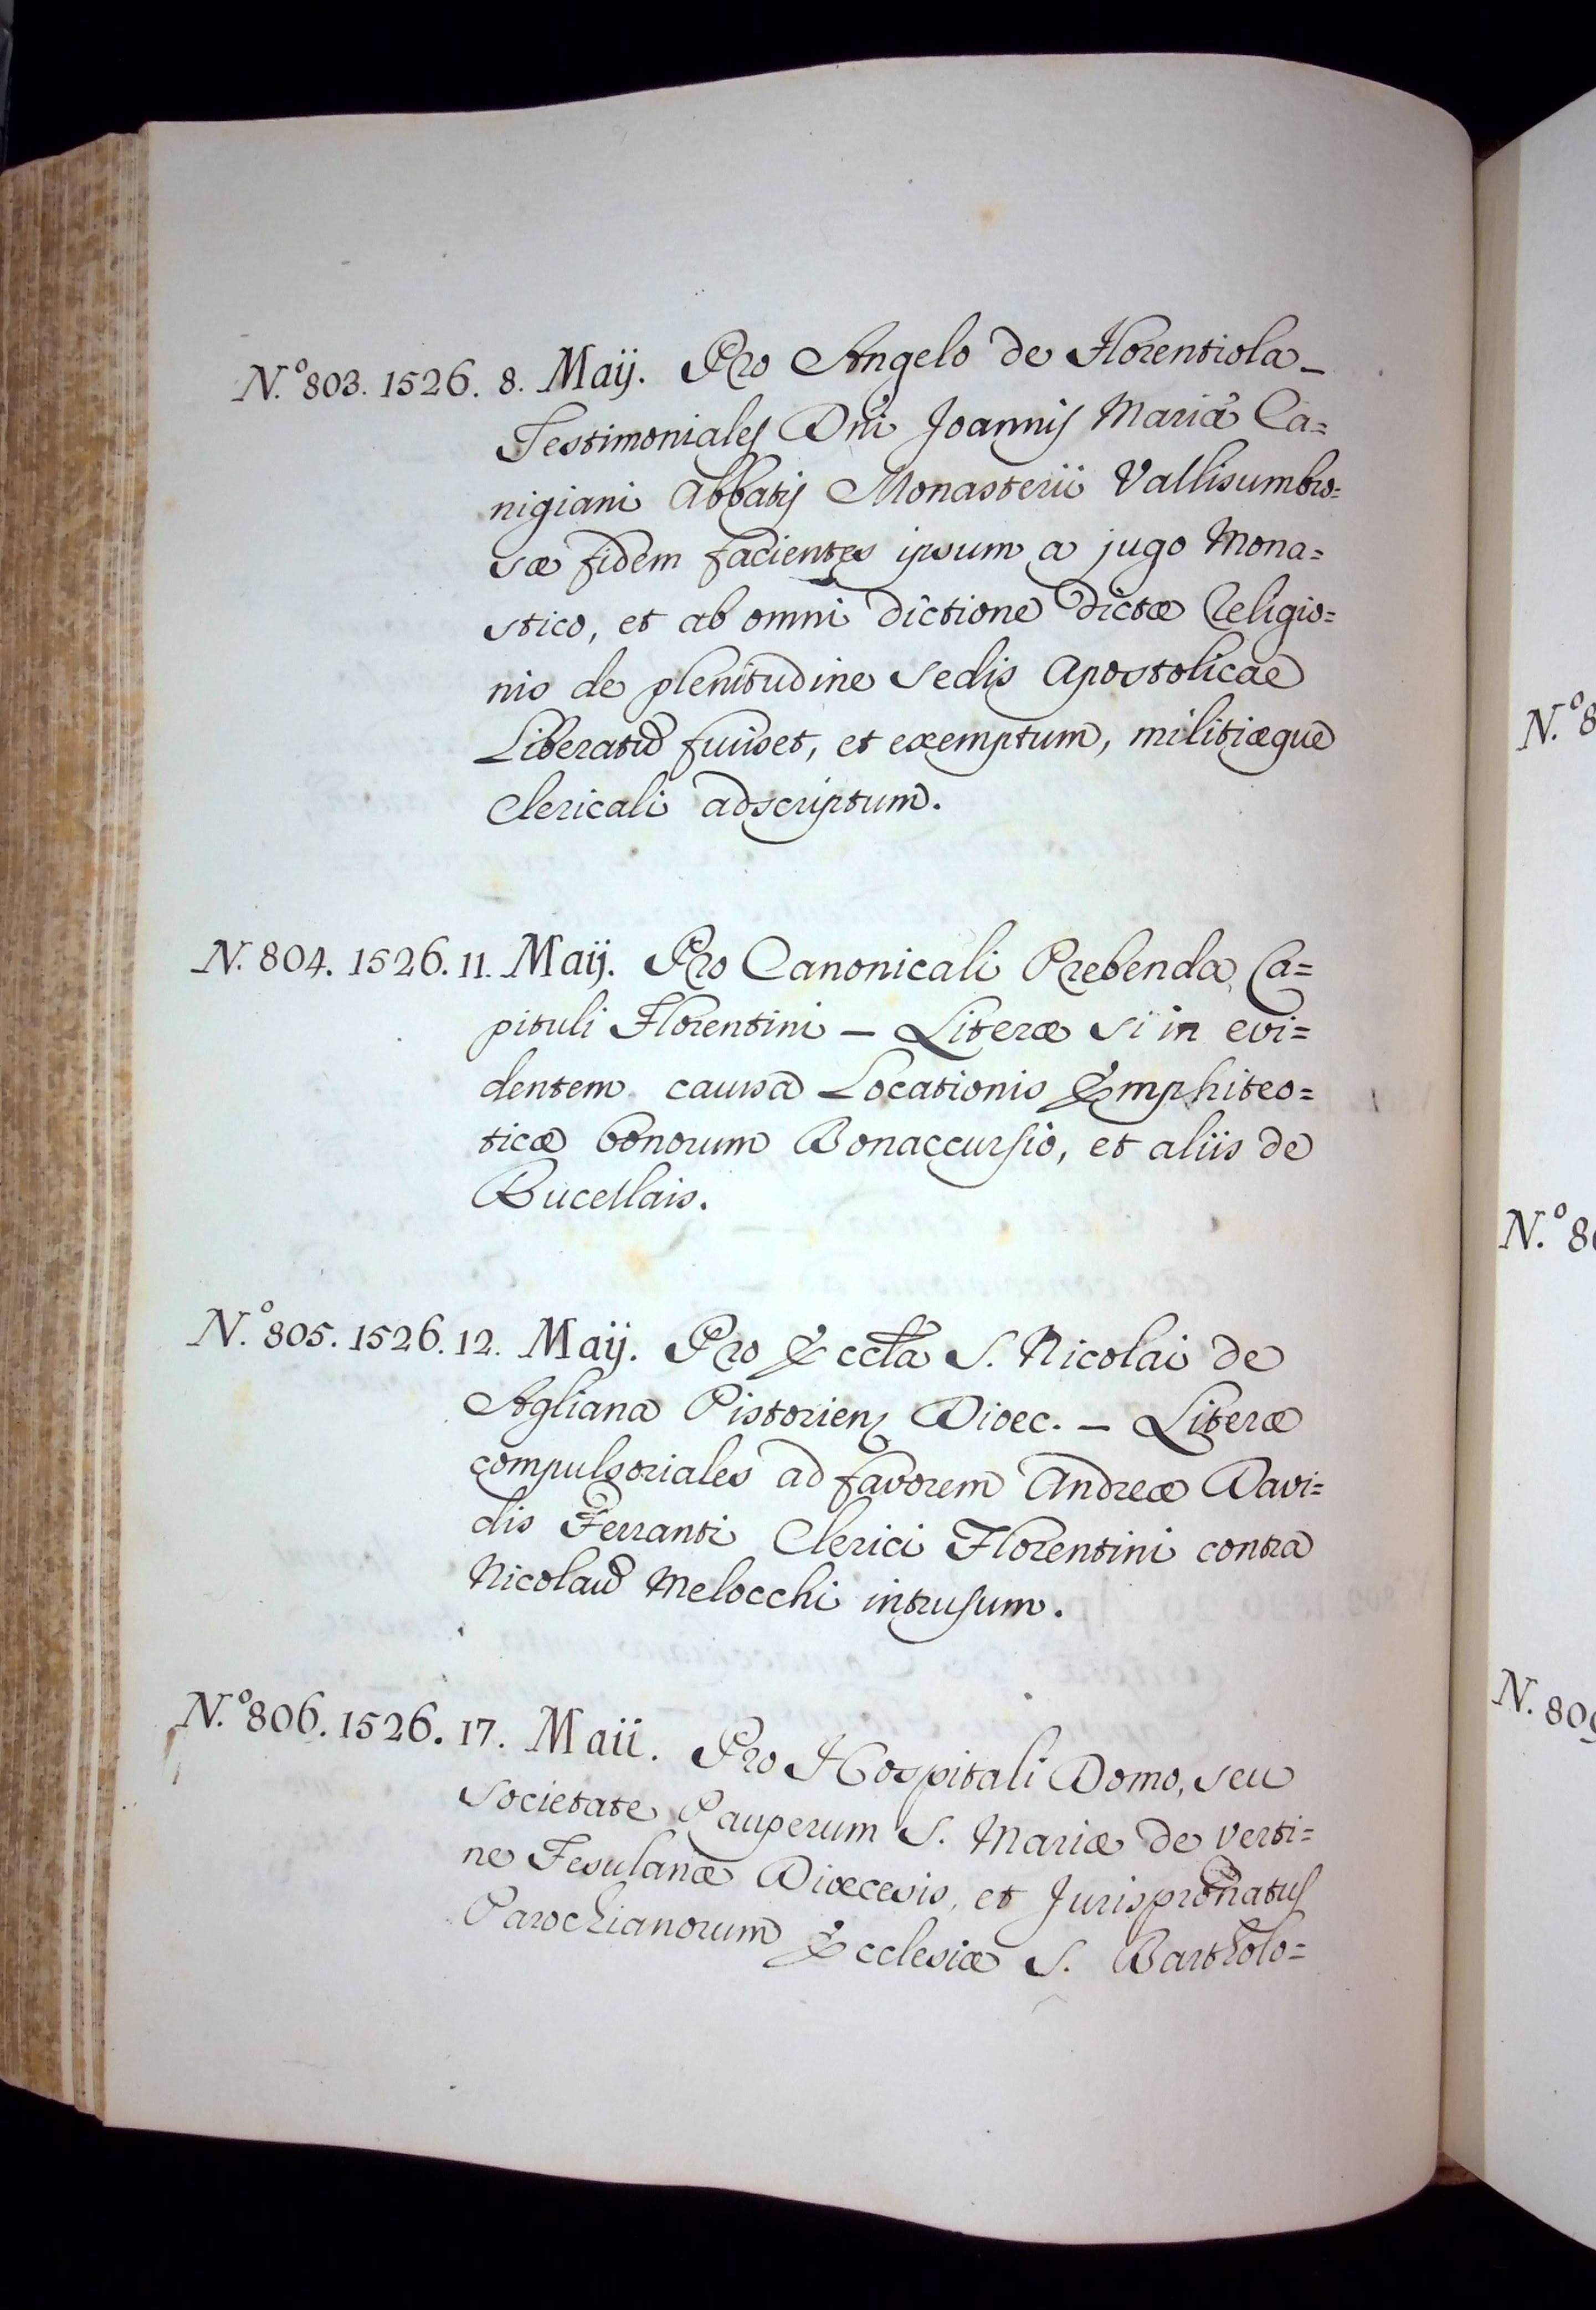 N.º 803. 1526. 8. Maij. Pro Angelo de Florentiola_
Testimoniales Dni Joannis Mariæ Ca=
nigiani Abbatis Monasterii Vallisumbro=
sæ fidem facientes ipsum a jugo Mona=
stico, et ab omni dictione dictæ Religio=
nis de plenitudine Sedis Apostolicae
Liberatũ fuisset, et exemptum, militiæque
Clericali adscriptum.
N. 804. 1526. 11. Maij. Pro Canonicali Prebenda Ca=
pituli Florentini — Literæ Si in evi=
dentem causa Locationis Emphiteo=
ticæ bonorum Bonaccursio, et aliis de
Bucellais.
N.º 805. 1526. 12. Maij. Pro Eccla S. Nicolai de
Agliana Pistorien; Dioec. — Literæ
compulsoriales ad favorem Andreæ Davi=
dis Ferranti Clerici Florentini contra
Nicolaũ Melocchi intrusum.
N.º 806. 1526. 17. Maii. Pro Hospitali Domo, seu
Societate Pauperum S. Mariæ de Verti=
ne Fesulanæ Diœcesis, et Jurispronatus
Parochianorum Ecclesiæ S. Bartholo=
N.º 8
N.º 80
N. 809